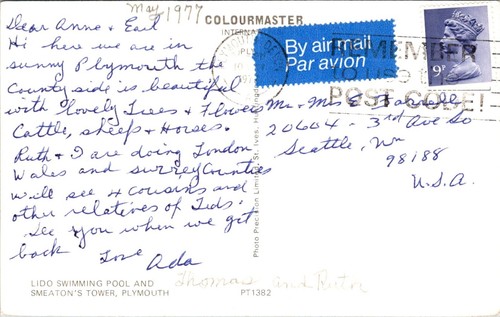 May, 1977
COLOURMASTER
INTERNA
Dear Anne & Earl
Hi here we are in
sunny Plymouth the
County side is beautiful
with lovely Trees & Flowers
Cattle, sheep & Horses.
Ruth & I are doing London
Wales and surrey Counties
will see 4 cousins and
other relatives of Teds.
See you when we get
back
Love
Ada
By air mail
Par avion
REMEMBER
TO USE THE
POST CODE!
9P
Mr & Mrs E.
20604 - 3rd Ave So
Seattle, Wn
98188
U.S.A.
Photo Precision Limited, St. Ives,
LIDO SWIMMING POOL AND
SMEATON'S TOWER, PLYMOUTH
PT1382
Thomas and Ruth